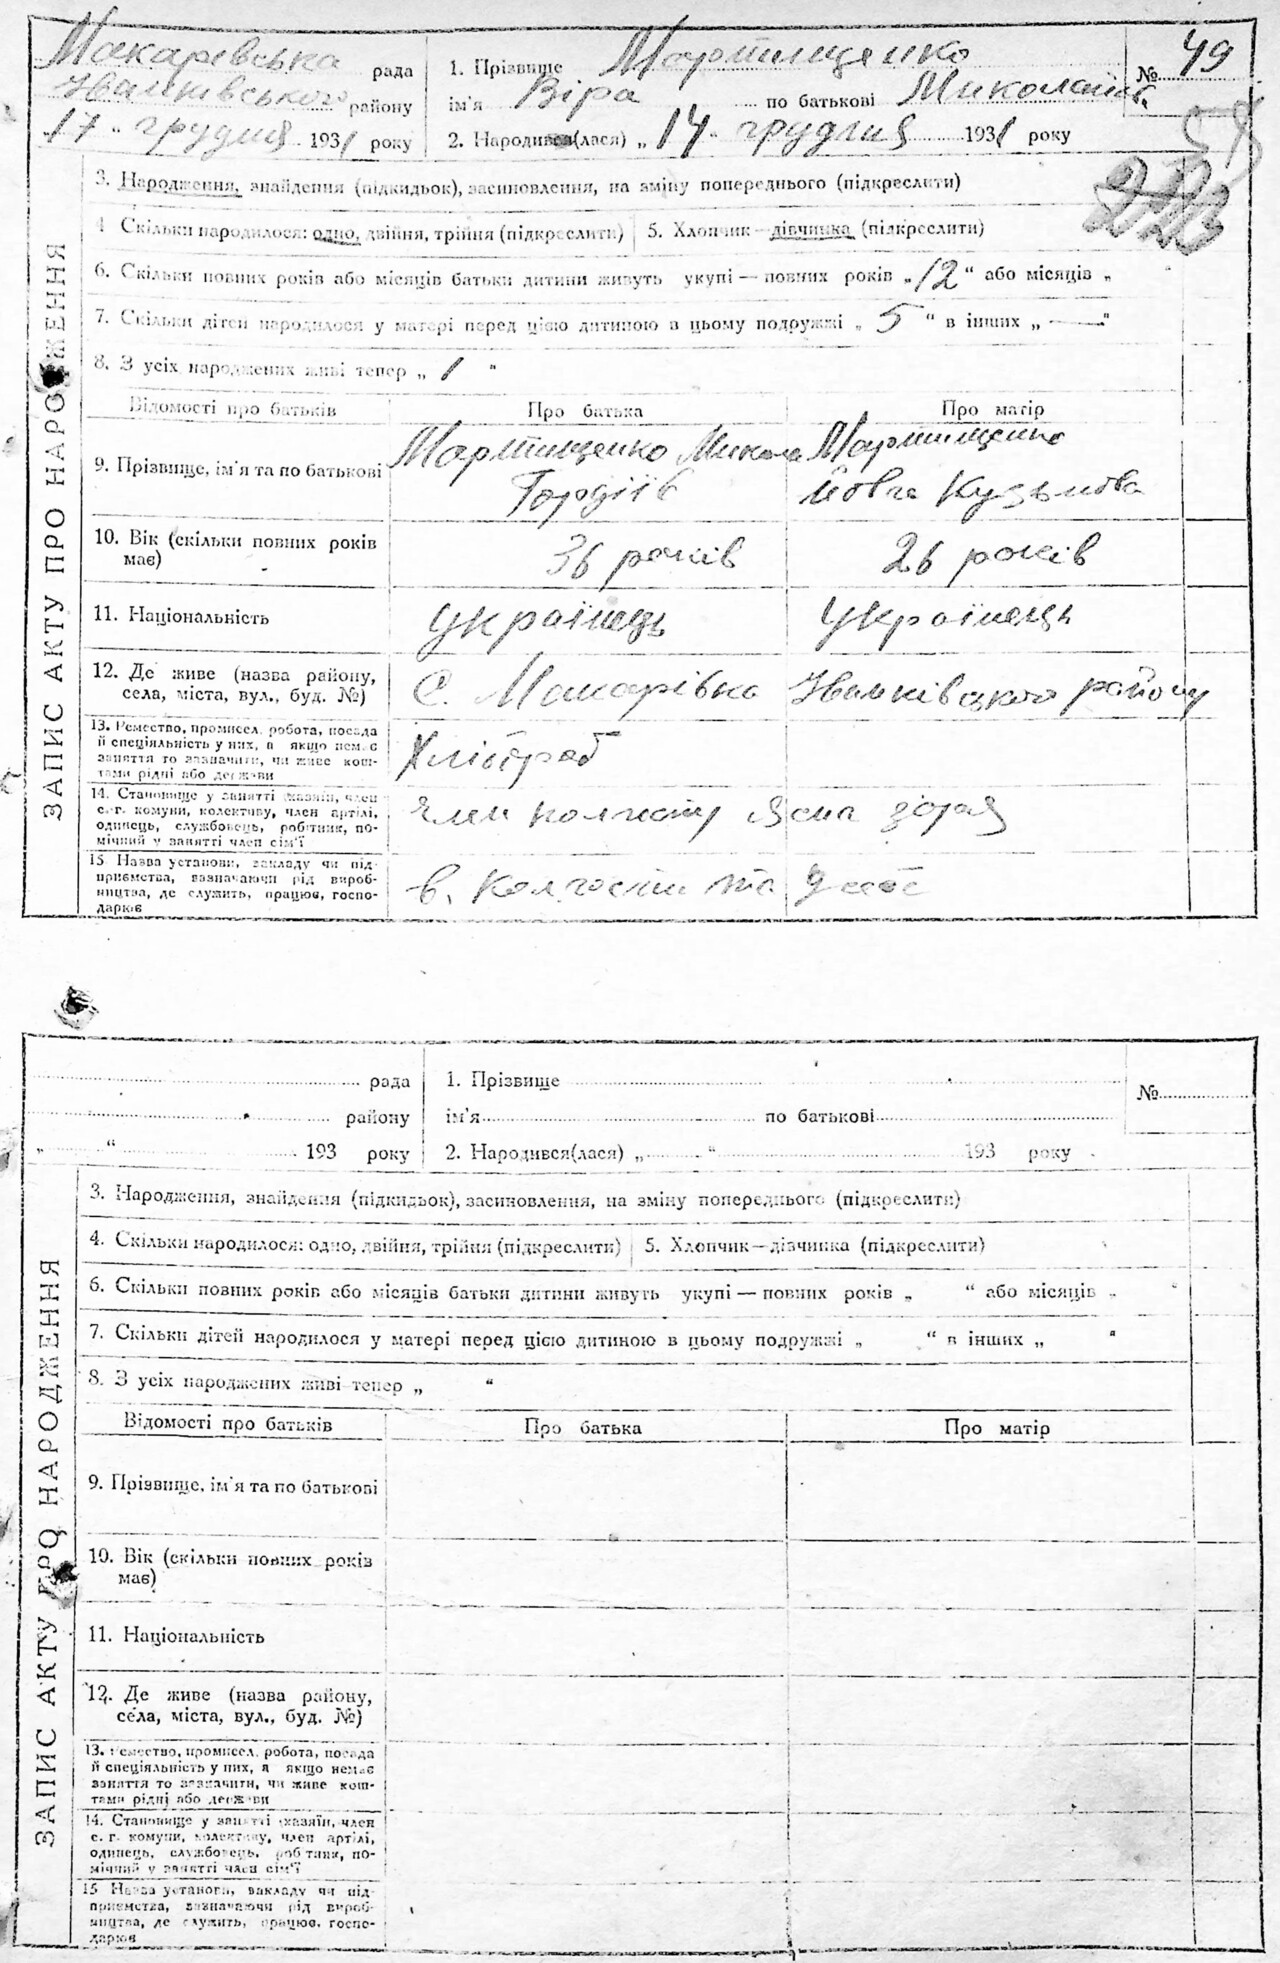 Макарівська рада
Іванківського району
17 " грудня 1931 року
1. Прізвище Мартищенко
ім'я Віра по батькові Миколаїв.
2. Народився(лася) „ 14 " грудня 1931 року
№ 49
3. Народження, знайдення (підкидьок), засиновлення, на зміну попереднього (підкреслити)
4 Скільки народилося: одно, двійня, трійня (підкреслити) 5. Хлопчик—дівчинка (підкреслити)
6. Скільки повних років або місяців батьки дитини живуть укупі — повних років „ 12 " або місяців „
7. Скільки дітей народилося у матері перед цією дитиною в цьому подружжі „ 5 " в інших „ — "
8. З усіх народжених живі тепер „ 1 "
Відомості про батьків Про батька Про матір
9. Прізвище, ім'я та по батькові
Мартищенко Микола
Гордіїв
Мартищенко
Кузьмова
10. Вік (скільки повних років
має)
36 років 26 років
11. Національність українець українець
12. Де живе (назва району,
села, міста, вул., буд. №)
С. Макарівка Іванківського району
13. Ремество, промисел, робота, посада
й спеціяльність у них, а якщо немає
заняття то зазначити, чи живе кош-
тами рідні або держави
Хлібороб
14. Становище у занятті (хазяїн, член
с.-г. комуни, колективу, член артілі,
одинець, службовець, робітник, по-
мічний у занятті член сім'ї
член колгоспу Ясна зоря
15 Назва установи, закладу чи під-
приємства, зазначаючи рід вироб-
ництва, де служить, працює, госпо-
дарює
в. Колгоспі
ЗАПИС АКТУ ПРО НАРОДЖЕННЯ
рада
району
„ " 193 року
1. Прізвище
ім'я по батькові
2. Народився(лася) „ " 193 року
№
3. Народження, знайдення (підкидьок), засиновлення, на зміну попереднього (підкреслити)
4. Скільки народилося: одно, двійня, трійня (підкреслити) 5. Хлопчик—дівчинка (підкреслити)
6. Скільки повних років або місяців батьки дитини живуть укупі — повних років „ " або місяців „ "
7. Скільки дітей народилося у матері перед цією дитиною в цьому подружжі „ " в інших „ "
8. З усіх народжених живі тепер „ "
Відомості про батьків Про батька Про матір
9. Прізвище, ім'я та по батькові
10. Вік (скільки повних років
має)
11. Національність
12. Де живе (назва району,
села, міста, вул., буд. №)
13. Ремество, промисел, робота, посада
й спеціяльність у них, а якщо немає
заняття то зазначити, чи живе кош-
тами рідні або держави
14. Становище у занятті (хазяїн, член
с. г. комуни, колективу, член артілі,
одинець, службовець, робітник, по-
мічний у занятті член сім'ї
15 Назва установи, закладу чи під-
приємства, зазначаючи рід вироб-
ництва, де служить, працює, госпо-
дарює
ЗАПИС АКТУ ПРО НАРОДЖЕННЯ